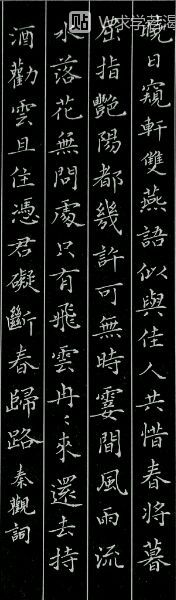 曉日窺軒雙燕語似與佳人共惜春將暮
屈指艷陽都幾許可無時霎間風雨流
水落花無問處只有飛雲冉〻來還去持
酒勸雲且住憑君礙斷春歸路 秦觀詞
貼 W求学若渴